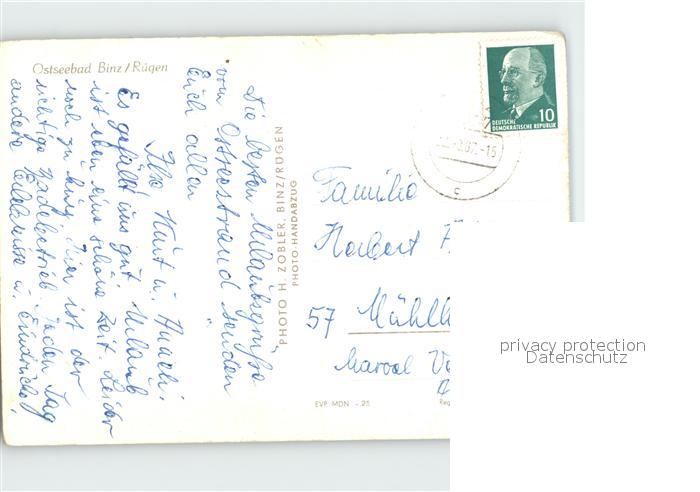 Ostseebad Binz / Rügen
Die besten Urlaubsgrüße
vom Ostseestrand senden
Euch allen
Ilse Kurt u.
Es gefällt uns gut. Urlaub
ist eben eine schöne Zeit. Leider
noch zu kurz. Hier ist der
richtige Badebetrieb. Jeden Tag
andere Erlebnisse u. Eindrücke!
PHOTO H. ZOBLER, BINZ/RÜGEN
PHOTO-HANDABZUG
10
DEUTSCHE
DEMOKRATISCHE REPUBLIK
-15
c
Familie
Herbert
57 Mühlh
Marcel
EVP MDN -.25
Reg
privacy protection
Datenschutz